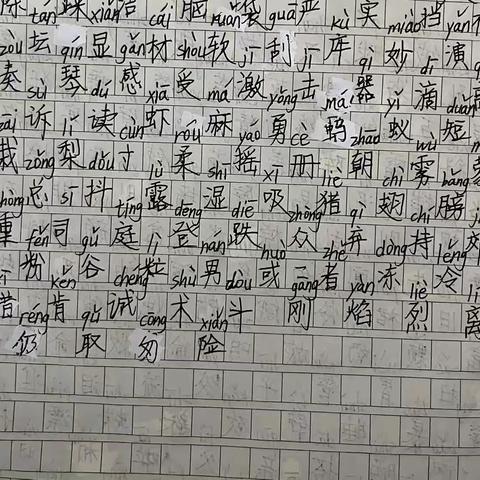 tán 踩 xiàn 陷 cái 脑 ruǎn 袋 guā 严 kù 实 miào 挡
zòu 坛 qín 显 gǎn 材 shòu 软 jī 刮 jī 库 qì 妙 dī 演
奏 sù 琴 dú 感 xiā 受 má 激 yǒng 击 mǎ 器 yǐ 滴 duǎn
zāi 诉 lí 读 cùn 虾 róu 麻 yáo 勇 cè 蚂 zhāo 蚁 wù 短
栽 zǒng 梨 dǒu 寸 lù 柔 shī 摇 xī 册 liè 朝 chì 雾 bǎng
zhòng 总 sī 抖 tíng 露 dēng 湿 diē 吸 zhòng 猪 qì 翅 chí 膀
重 fěn 司 gǔ 庭 lì 登 nán 跌 huò 众 zhě 弃 dòng 持 lěng
粉 kěn 谷 chéng 粒 shù 男 dòu 或 gāng 者 yàn 冻 liè 冷
réng 肯 qǔ 诚 cōng 术 xiǎn 斗 刚 焰 烈 离
仍 取 匆 险